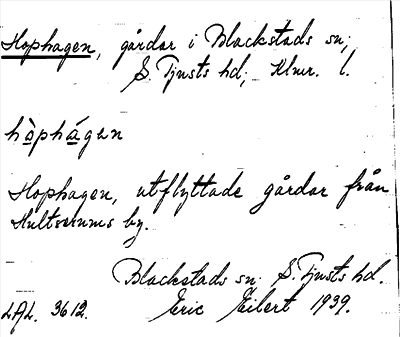 Hophagen, gårdar i Blackstads sn;
S. Tjusts hd; Klmr. l.
hòphágen
Hophagen, utflyttade gårdar från
Hultserums by.
Blackstads sn. S. Tjusts hd.
LAL. 3612. Eric Eilert 1939.